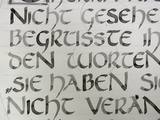 NICHT GESEHE
BEGRÜSSTE IH
DEN WORTEN
„SIE HABEN SI
NICHT VERÄN